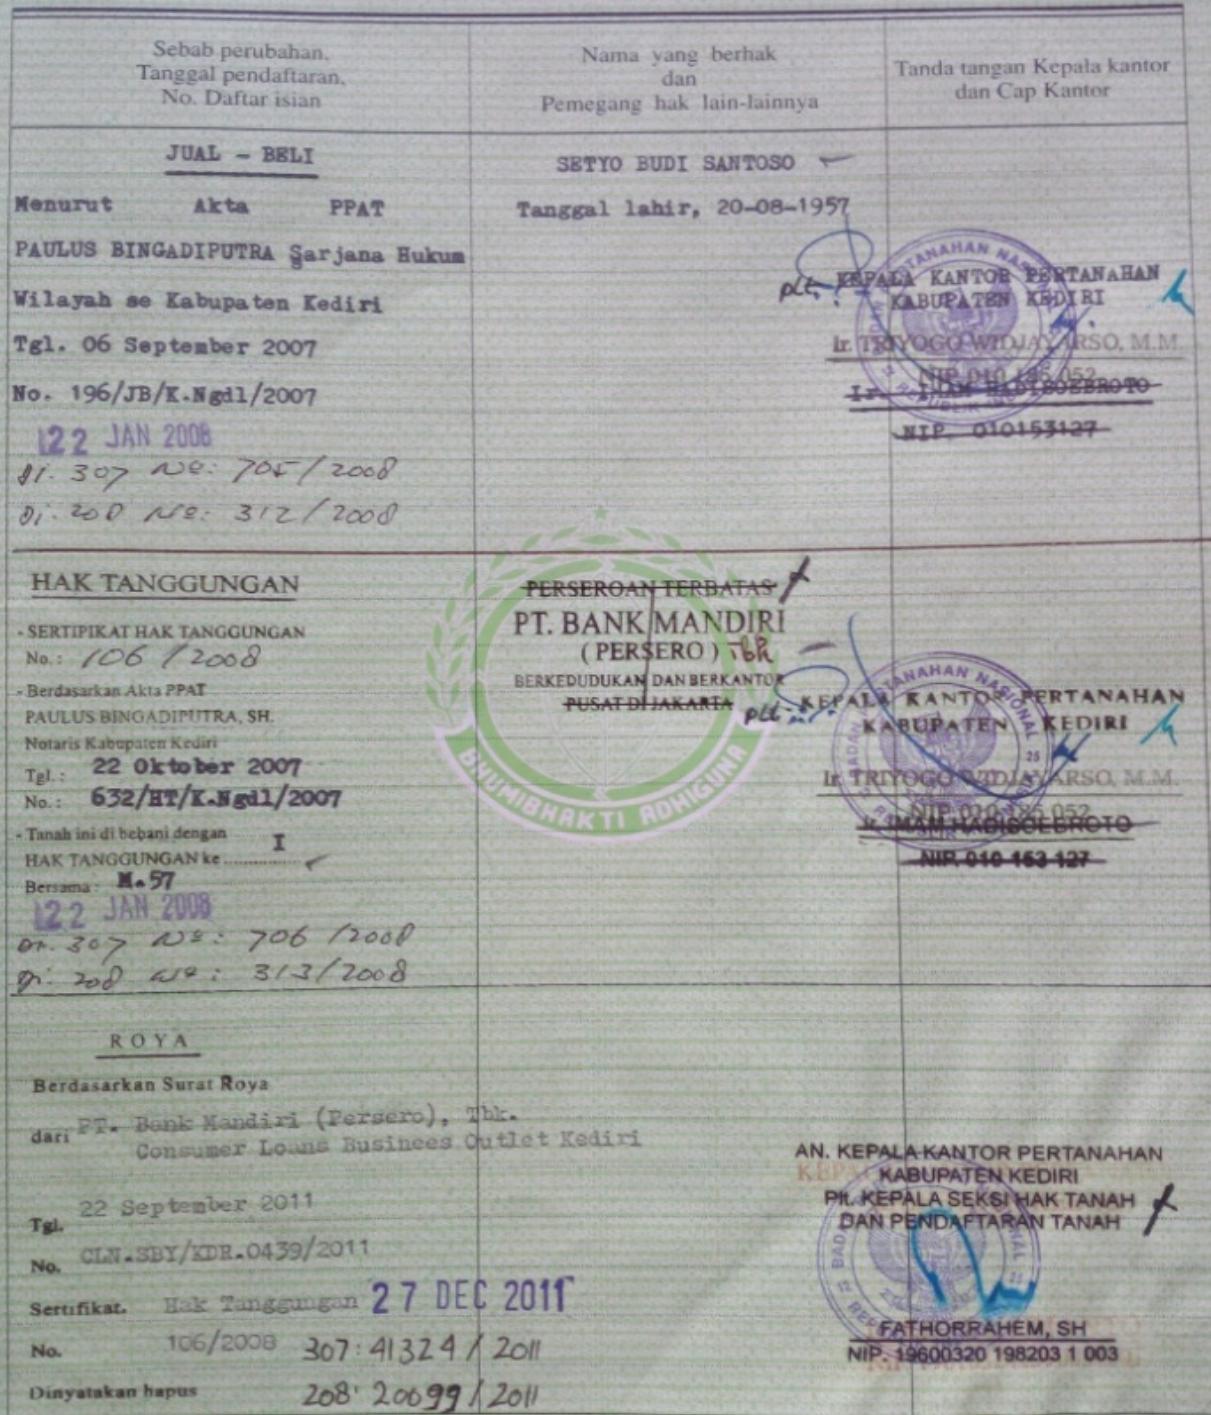 Sebab perubahan,
Tanggal pendaftaran,
No. Daftar isian
Nama yang berhak
dan
Pemegang hak lain-lainnya
Tanda tangan Kepala kantor
dan Cap Kantor
JUAL - BELI
Menurut Akta PPAT
PAULUS BINGADIPUTRA Sarjana Hukum
Wilayah se Kabupaten Kediri
Tgl. 06 September 2007
No. 196/JB/K.Ngdl/2007
22 JAN 2008
Di. 307 No: 705/2008
Di. 208 No: 312/2008
SETYO BUDI SANTOSO
Tanggal lahir, 20-08-1957
plt. KEPALA KANTOR PERTANAHAN
KABUPATEN KEDIRI
Ir. TRIYOGO WIDJAYARSO, M.M.
NIP 010 185 052
Ir. IMAM HADISOEBROTO
NIP. 010153127
HAK TANGGUNGAN
- SERTIPIKAT HAK TANGGUNGAN
No. : 106 / 2008
- Berdasarkan Akta PPAT
PAULUS BINGADIPUTRA, SH.
Notaris Kabupaten Kediri
Tgl. : 22 Oktober 2007
No. : 632/HT/K.Ngdl/2007
- Tanah ini di bebani dengan
HAK TANGGUNGAN ke ............ I
Bersama : M.57
22 JAN 2008
Di. 307 No: 706 /2008
Di. 208 No: 313/2008
PERSEROAN TERBATAS
PT. BANK MANDIRI
( PERSERO ) Tbk
BERKEDUDUKAN DAN BERKANTOR
PUSAT DI JAKARTA
plt. KEPALA KANTOR PERTANAHAN
KABUPATEN KEDIRI
Ir. TRIYOGO WIDJAYARSO, M.M.
NIP 010 185 052
Ir. IMAM HADISOEBROTO
NIP. 010 153 127
BHUMIBHAKTI ADHIGUNA
ROYA
Berdasarkan Surat Roya
dari PT. Bank Mandiri (Persero), Tbk.
Consumer Loans Businees Outlet Kediri
Tgl. 22 September 2011
No. CLN.SBY/KDR.0439/2011
Sertifikat. Hak Tanggungan 27 DEC 2011
No. 106/2008 307: 41324 / 2011
Dinyatakan hapus 208: 20099 / 2011
AN. KEPALA KANTOR PERTANAHAN
KABUPATEN KEDIRI
Plt. KEPALA SEKSI HAK TANAH
DAN PENDAFTARAN TANAH
FATHORRAHEM, SH
NIP. 19600320 198203 1 003